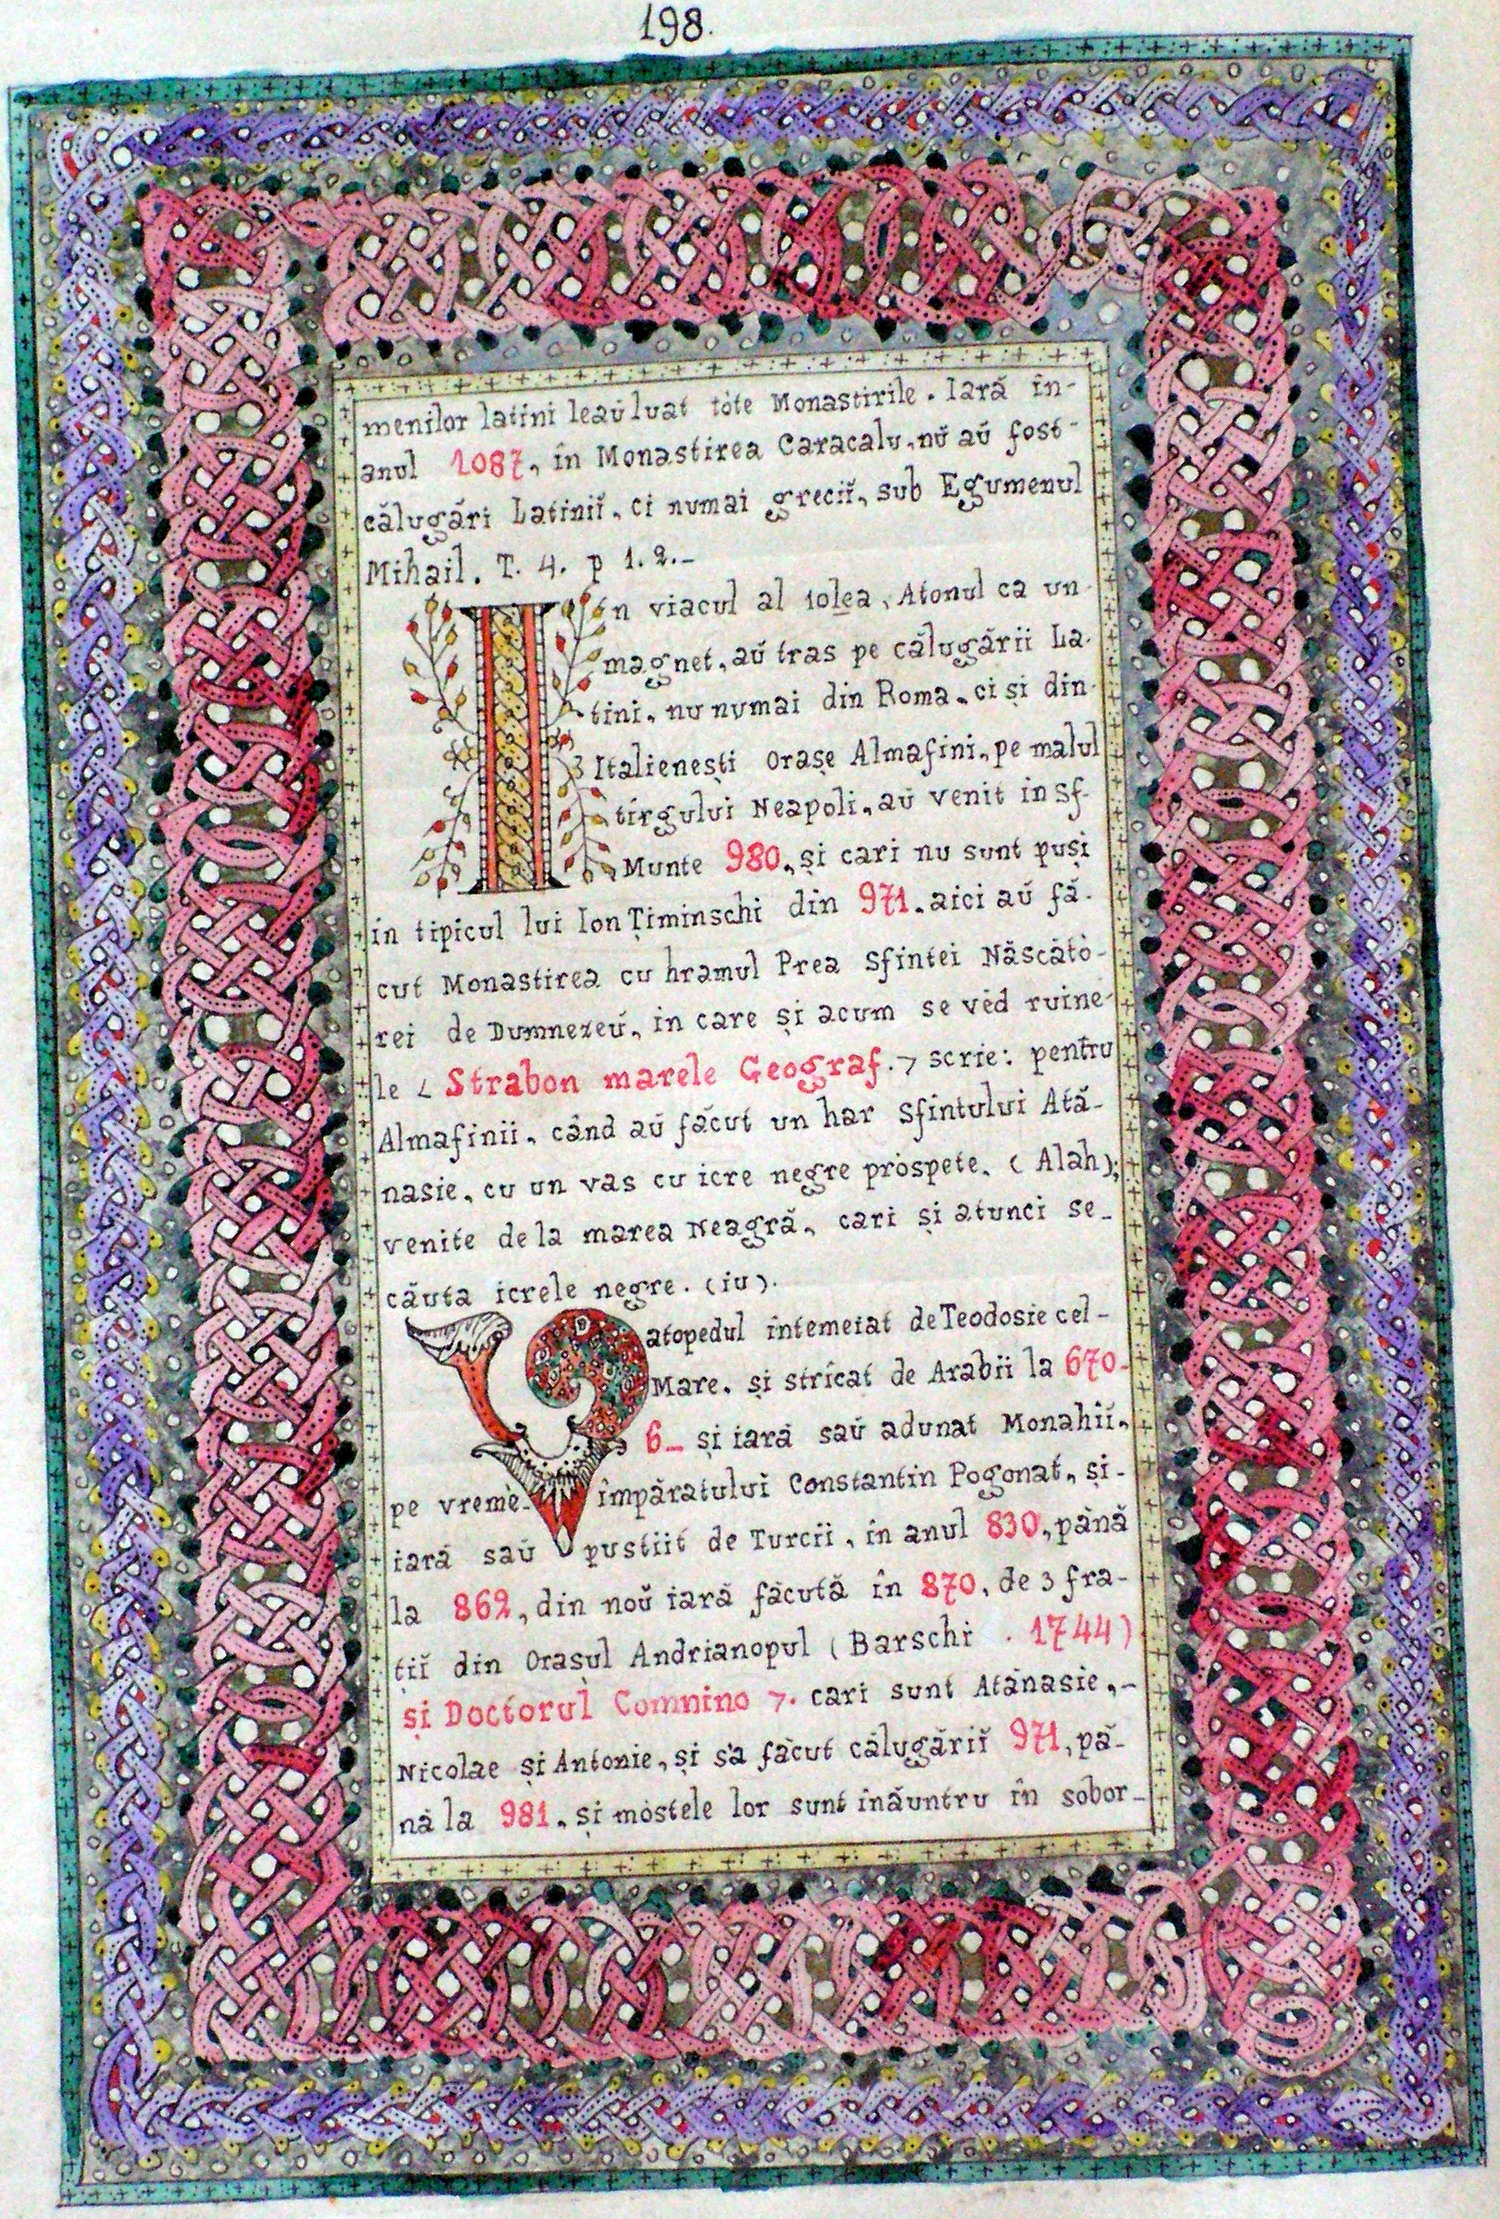 198.
menilor latini leaŭ luat tóte Monastirile. Iară în-
anul 1087, în Monastirea Caracalu, nŭ aŭ fost-
călugări Latiniĭ, ci numai greciĭ, sub Egumenul
Mihail. T. 4. p 1. 2.-
In viacul al 10lea, Atonul ca un-
magnet, aŭ tras pe călugării La-
tini, nu numai din Roma, ci și din-
Italienești Orașe Almafini, pe malul
tirgului Neapoli, aŭ venit in Sf-
Munte 980, și cari nu sunt puși
in tipicul lui Ion Țiminschi din 971. aici aŭ fă-
cut Monastirea cu hramul Prea Sfintei Născătò-
rei de Dumnezeŭ, in care și acum se vèd ruine-
le < Strabon marele Geograf. > scrie: pentru
Almafinii, când aŭ făcut un har Sfintului Ată-
nasie, cu un vas cu icre negre pròspete, (Alah);
venite de la marea Neagră, cari și atunci se-
căuta icrele negre. (iu).
Vatopedul întemeiat de Teodosie cel-
Mare, și stricat de Arabii la 670-
6- și iară saŭ adunat Monahiĭ,
pe vremè- împăratuluĭ Constantin Pogonat, și-
iară saŭ pustiit de Turcii, în anul 830, până
la 862, din noŭ iară făcută în 870, de 3 fra-
țiĭ din Orașul Andrianopul (Barschi . 1744)
și Doctorul Comnino >. cari sunt Atănasie,-
Nicolae și Antonie, și s'a făcut călugăriĭ 971, pă-
nă la 981, și mòstele lor sunt inăuntru în sobor-